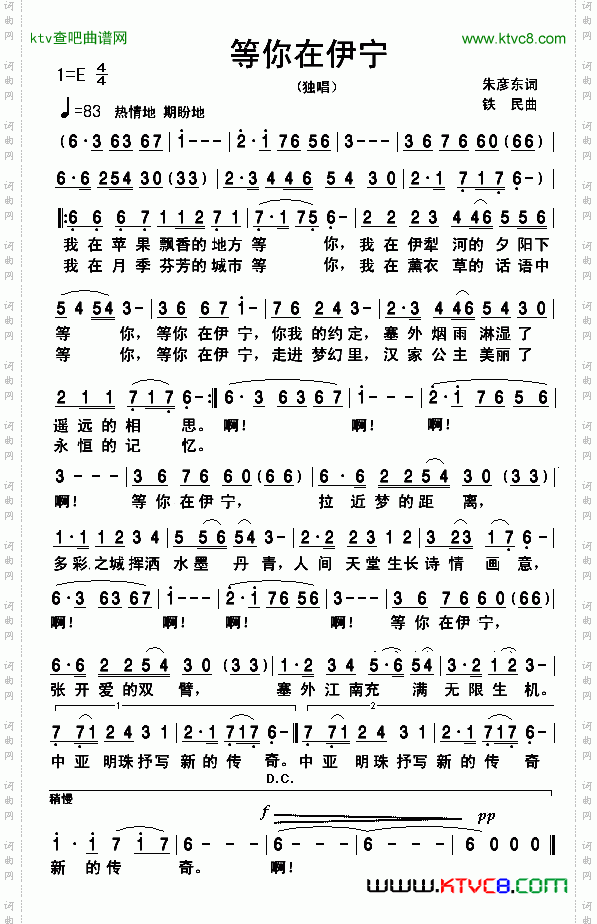 ktv查吧曲谱网
www.ktvc8.com
等你在伊宁
（独唱）
1=E 4/4
朱彦东词
铁　民曲
♩=83 热情地 期盼地
(6·3 63 67 | i--- | 2·i 76 56 | 3--- | 36 76 60 (66) |
6·6 254 30 (33) | 2·3 446 54 30 | 2·1 717 6-) |
|: 6 6 6 7 1 1 2 7 1 | 7·1 75 6- | 2 2 2 3 4 46 5 56 |
我 在 苹 果 飘香的 地方 等 你，我 在 伊犁 河的 夕 阳下
我 在 月 季 芬芳的 城市 等 你，我 在 薰衣 草的 话语中
5 4 54 3- | 36 67 60 | 34 42 3- | 2·3 446 54 30 |
等 你，等你 在 伊宁，你我 的 约定，塞 外 烟雨 淋湿了
等 你，等你 在 伊宁，走进 梦幻 里，汉 家 公主 美丽了
2 1 1 717 6- :| 6·3 6367 | i--- | 2·i 7656 |
遥远的相 思。 啊！ 啊！ 啊！
永恒的记 忆。
3--- | 36 76 60 (66) | 6·6 2254 30 (33) |
啊！ 等你在伊宁， 拉 近 梦 的 距 离，
1·1 1234 | 5 56 54 3- | 2·1 2344 | 3 23 17 6- |
多彩之城挥洒 水墨 丹 青，人 间 天堂生长 诗情 画 意，
6·3 6367 | i--- | 2·i 7656 | 3--- | 36 7660 (66) |
啊！ 啊！ 啊！ 啊！ 等 你 在伊宁，
6·6 2254 30 (33) | 1·2 34 5·6 54 | 3·1 2123- |
张开爱的双 臂， 塞外江南充 满 无限生 机。
1
2
7 71 2431 | 2·1 717 6- :| 7 71 2431 | 2·1 717 6- |
中亚 明珠抒写 新的传 奇。中亚 明珠抒写 新的传 奇
D.C.
稍慢
f
pp
i·i 7 i7 | 6--- | 6--- | 6--- | 6000 ||
新 的传 奇。 啊！
www.KTVC8.com
词曲网
词曲网